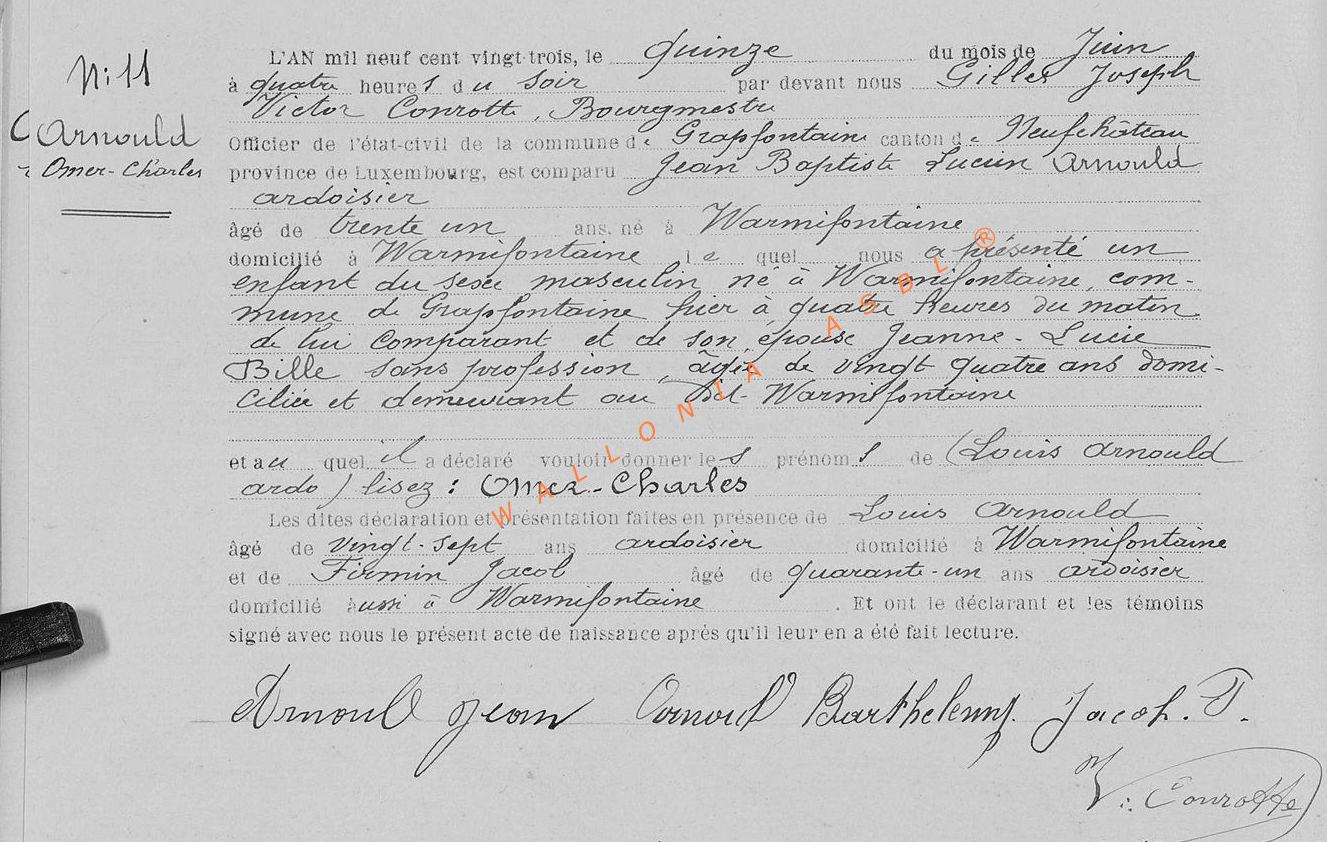 N: 11
Arnould
Omer-Charles
L'AN mil neuf cent vingt-trois, le quinze du mois de Juin
à quatre heures du soir par devant nous Gilles Joseph
Victor Conrotte, Bourgmestre
Officier de l'état-civil de la commune de Grapfontaine canton de Neufchâteau
province de Luxembourg, est comparu Jean Baptiste Lucien Arnould
ardoisier
âgé de trente un ans, né à Warmifontaine
domicilié à Warmifontaine le quel nous a présenté un
enfant du sexe masculin né à Warmifontaine, com-
mune de Grapfontaine hier à quatre heures du matin
de lui comparant et de son épouse Jeanne-Lucie
Bille sans profession, âgée de vingt quatre ans domi-
ciliée et demeurant au dit Warmifontaine
et au quel il a déclaré vouloir donner les prénoms de (Louis Arnould
ardo) lisez : Omer-Charles
Les dites déclaration et présentation faites en présence de Louis Arnould
âgé de vingt-sept ans ardoisier domicilié à Warmifontaine
et de Firmin Jacob âgé de quarante-un ans ardoisier
domicilié aussi à Warmifontaine. Et ont le déclarant et les témoins
signé avec nous le présent acte de naissance après qu'il leur en a été fait lecture.
Arnoul Jean Arnoul Barthelemy. Jacob. F.
V: Conrotte
WALLONIA ASBL ®